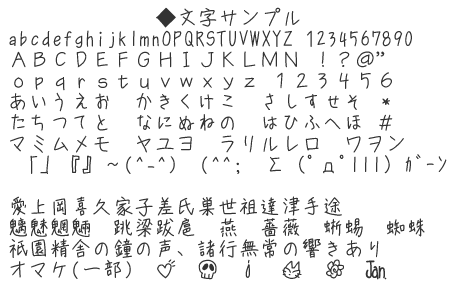 ◆文字サンプル
abcdefghijklmnOPQRSTUVWXYZ 1234567890
ＡＢＣＤＥＦＧＨＩＪＫＬＭＮ ！？＠”
ｏｐｑｒｓｔｕｖｗｘｙｚ １２３４５６
あいうえお かきくけこ さしすせそ ＊
たちつてと なにぬねの はひふへほ ＃
マミムメモ ヤユヨ ラリルレロ ワヲン
「」『』～(^-^) (^^; Σ(ﾟдﾟlll) ｶﾞｰﾝ
愛上岡喜久家子差氏巣世祖達津手途
魑魅魍魎 跳梁跋扈 燕 薔薇 蜥蜴 蜘蛛
祇園精舎の鐘の声、諸行無常の響きあり
オマケ(一部) ♡ Jan